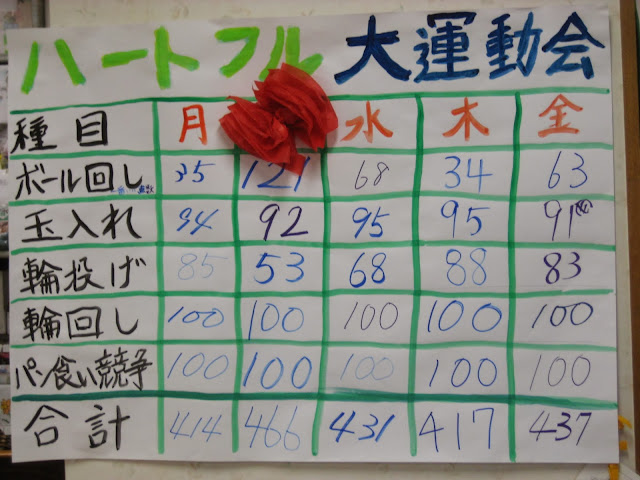 ハートフル 大運動会
種目 月 水 木 金
ボール回し 35 121 68 34 63
玉入れ 94 92 95 95 91
輪投げ 85 53 68 88 83
輪回し 100 100 100 100 100
パン食い競争 100 100 100 100 100
合計 414 466 431 417 437